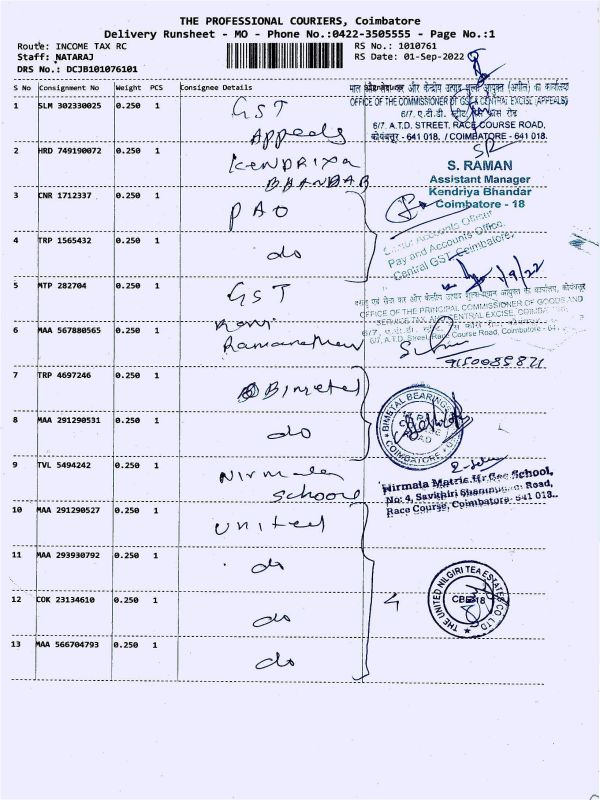 THE PROFESSIONAL COURIERS, Coimbatore
Delivery Runsheet - MO - Phone No.:0422-3505555 - Page No.:1
Route: INCOME TAX RC
RS No.: 1010761
Staff: NATARAJ
RS Date: 01-Sep-2022
DRS No.: DCJB101076101
S No Consignment No Weight PCS Consignee Details
1 SLM 302330025 0.250 1 GST
Appeals
OFFICE OF THE COMMISSIONER OF GST & CENTRAL EXCISE (APPEALS)
6/7, A.T.D. STREET, RACE COURSE ROAD,
कोयंबत्तूर - 641 018. / COIMBATORE - 641 018.
2 HRD 749190072 0.250 1 KENDRIYA
BHANDAR
S. RAMAN
Assistant Manager
Kendriya Bhandar
Coimbatore - 18
3 CNR 1712337 0.250 1 PAO
Accounts Officer
Pay and Accounts Office,
Central GST, Coimbatore.
4 TRP 1565432 0.250 1 do
1/9/22
5 MTP 282704 0.250 1 GST
OFFICE OF THE PRINCIPAL COMMISSIONER OF GOODS AND
SERVICE TAX AND CENTRAL EXCISE,
6/7, A.T.D. Street, Race Course Road, Coimbatore - 
6 MAA 567880565 0.250 1
9150085871
7 TRP 4697246 0.250 1 Bimetal
BIMETAL BEARINGS
COIMBATORE
8 MAA 291290531 0.250 1 do
9 TVL 5494242 0.250 1 Nirmala
School
Nirmala Matric.Hr.Sec.School,
No: 4, Savithiri Shanmugam Road,
Race Course, Coimbatore- 641 018.
10 MAA 291290527 0.250 1 United
11 MAA 293930792 0.250 1 do
12 COK 23134610 0.250 1 do
4
THE UNITED NILGIRI TEA ESTATES CO LTD
CBE-18
13 MAA 566704793 0.250 1 do